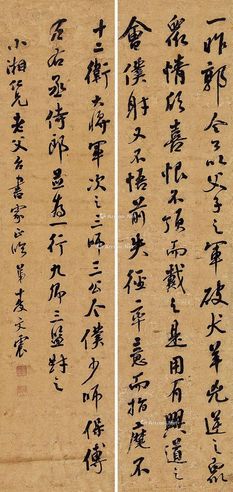 一昨郭令公以父子之軍破犬羊兇逆之眾
眾情欣喜恨不頂而戴之是用有興道之
會僕射又不悟前失徑率意而指麾不
十二衛大將軍次之三師三公令僕少師保傅
左右丞侍郎並為一行九卿三監對之
小湘仁兄老父台書家正臨 弟夏文震